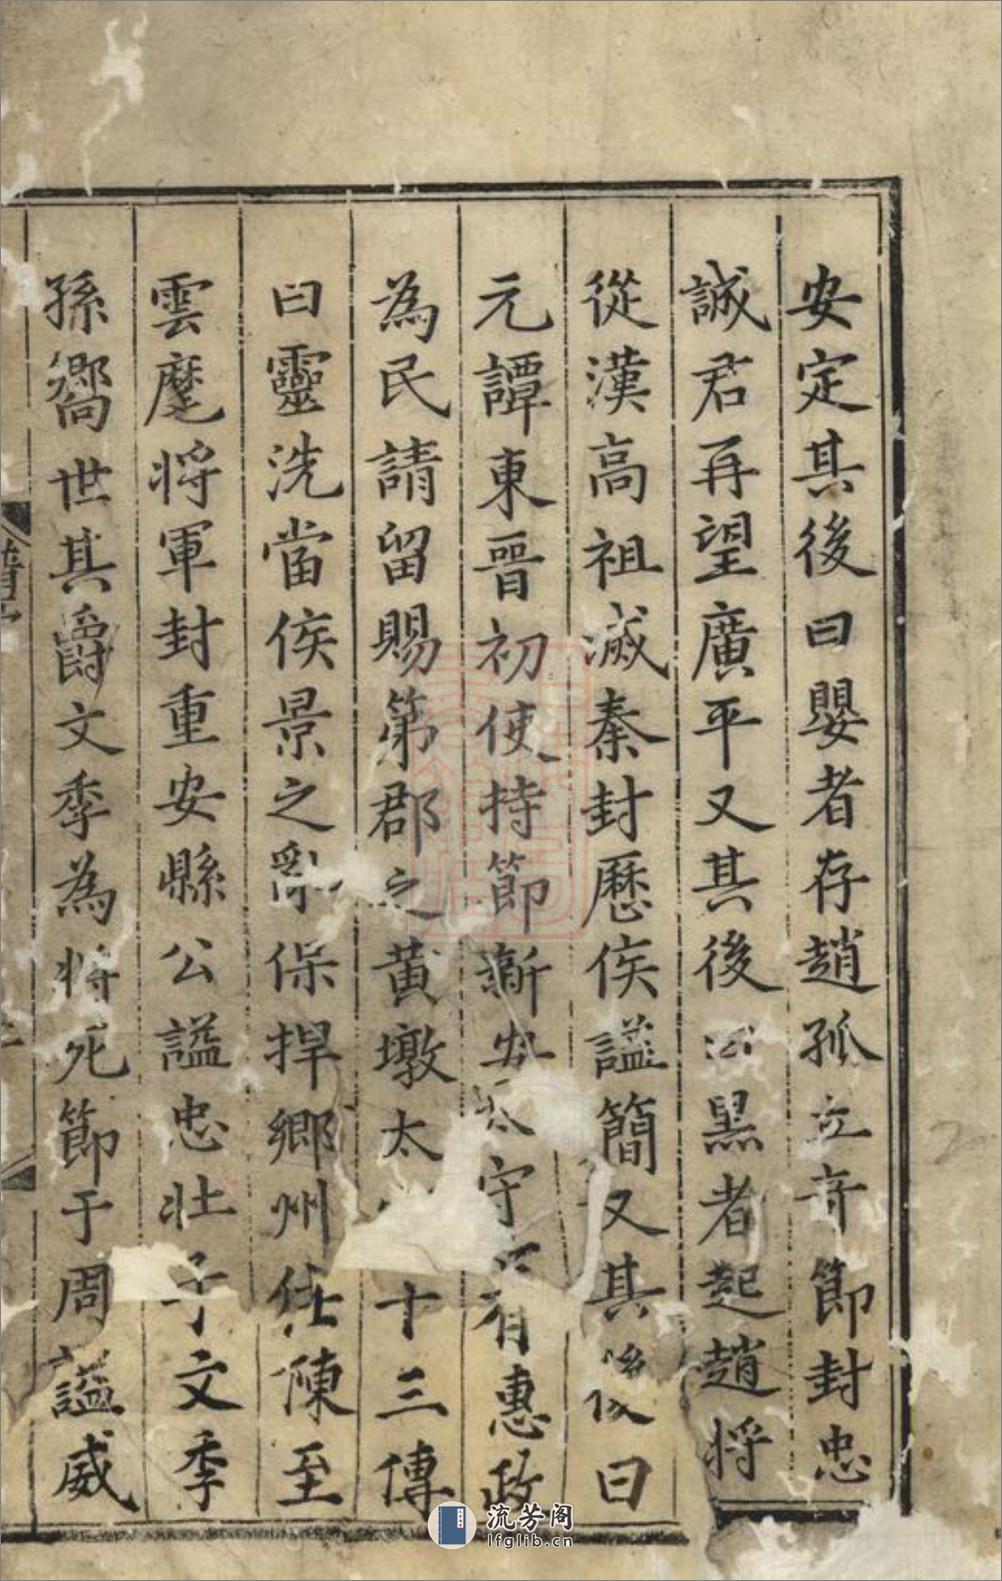 安定其後曰嬰者存趙孤立奇節封忠
誠君再望廣平又其後曰黑者起趙將
從漢高祖滅秦封歷侯諡簡又其後曰
元譚東晉初使持節新安太守有惠政
為民請留賜第郡之黃墩太十三傳
曰靈洗當侯景之亂保捍鄉州仕陳至
雲麾將軍封重安縣公諡忠壯子文季
孫嚮世其爵文季為將死節于周諡威
流芳阁
lfglib.cn